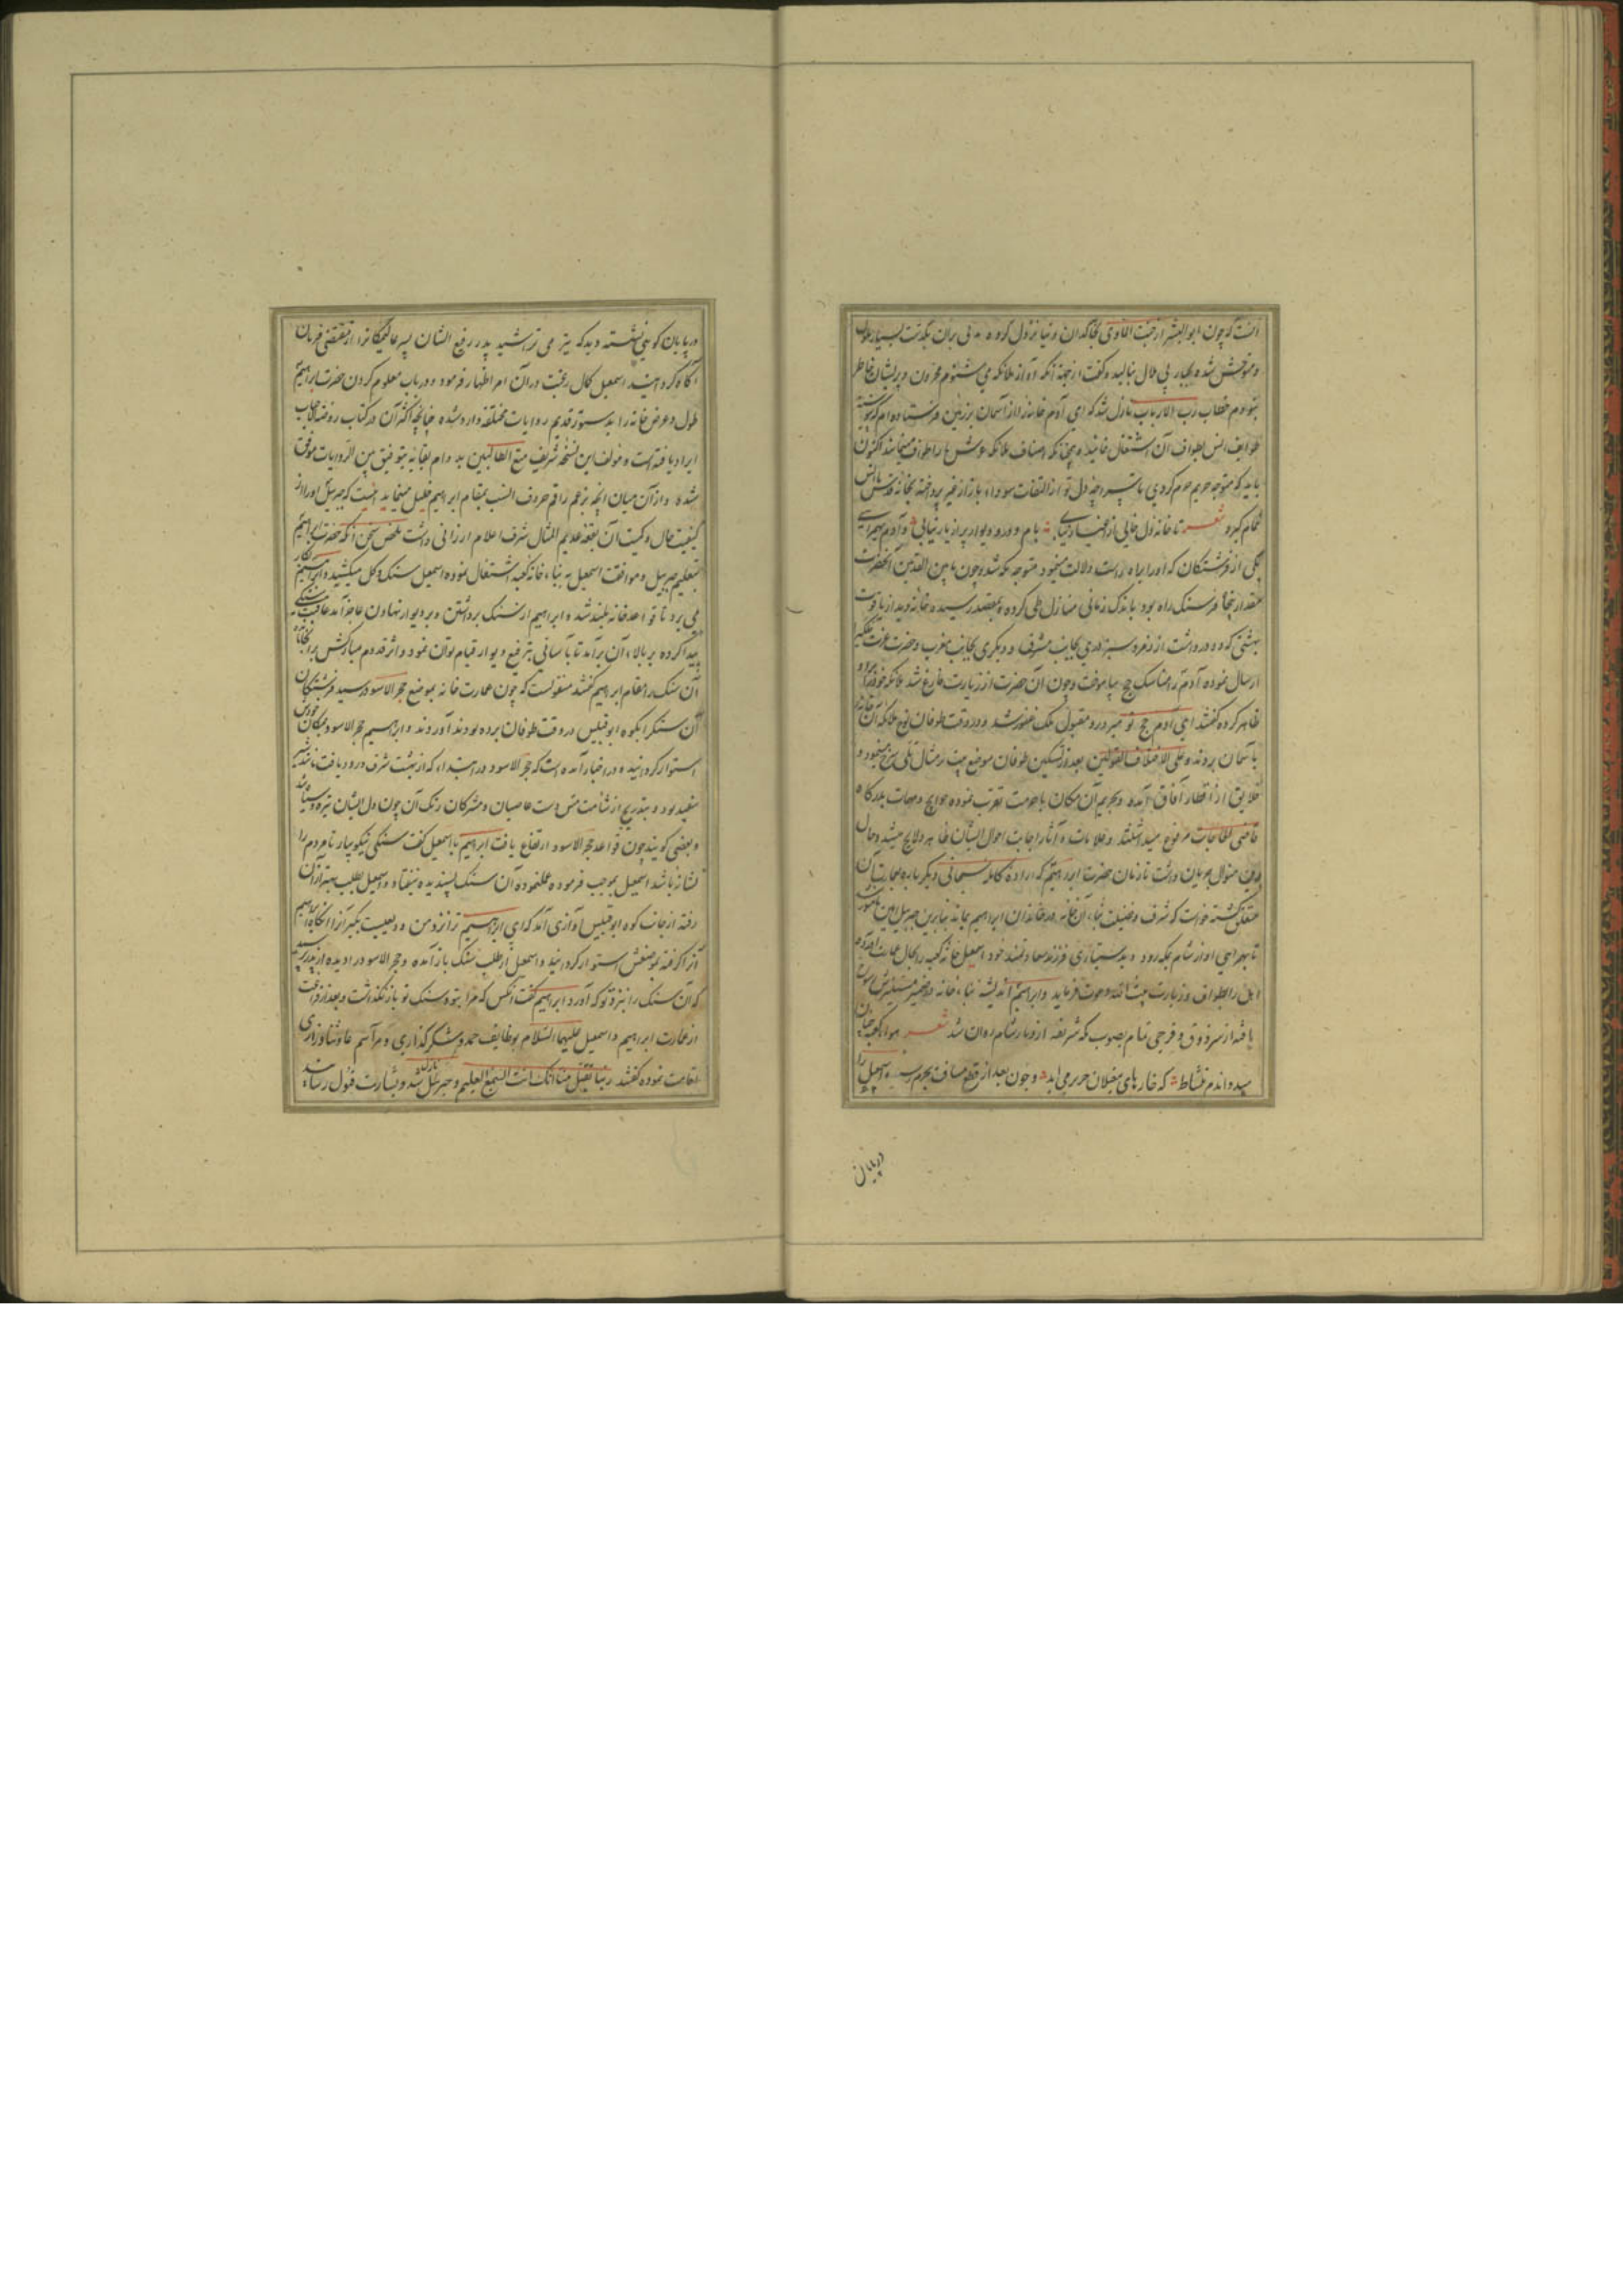 آنست که چون ابوالبشر از جنت الماوی بخاکدان دنیا نزول کرده مدتی بران بگذشت بسیار ملول
و متوحش شده بجبار بی ملال بنالید و گفت از جهة آنکه آواز ملائکه می شنوم محزون و پریشان خاطر
خطاب رب الارباب نازل شد که ای آدم خانه را از آسمان بزمین فرستاده ام که پیوسته
طوایف انس بطواف آن اشتغال نمایند همچنانکه اصناف ملائکه عرش را طواف مینمایند اکنون
باید که متوجه حریم حرم کردی تا دل تو از التفات سودا باز از غیر پرداخته بخانه انس
تمام کیرد شعر تا خانه دل خالی از اغیار نیابی بام و در و دیوار پر از یار نیابی و آدم بهمراهی
یکی از فرشتکان که او را براه راست دلالت مینمود متوجه مکه شد و چون ما بین القدمین آنحضرت
مقدار پنجاه فرسنک راه بود باندک زمانی منازل طی کرده بمقصد رسید و خانه دید از یاقوت
بهشتی که دو در داشت از زمرد سبز دری بجانب مشرق و دیکری بجانب مغرب و حضرت عزت
ارسال نموده آدم را مناسک حج بیاموخت و چون آن حضرت از زیارت فارغ شد ملائکه خود را برو
ظاهر کرده گفتند ای آدم حج تو مبرور و مقبول ملک غفور شد و در وقت طوفان نوح ملائکه آن خانه را
بآسمان بردند و علی الاختلاف القولین بعد از تسکین طوفان موضع بیت بر مثال تلی سرخ مینمود و
خلایق از اقطار آفاق آمده و بحریم آن مکان با حرمت تقرب نموده حوایج و مهمات بدرکاه
قاضی الحاجات مرفوع میداشتند و علامات و آثار اجابت احوال ایشان ظاهر و لایح میشد و حال
بدین منوال جریان داشت تا زمان حضرت ابراهیم که اراده کامله سبحانی دیکر باره بعمارت آن
متعلق کشته خواست که شرف و فضیلت بناء آن خانه در خاندان ابراهیم بماند بنابرین جبریل امین
تا بهمراهی او از شام بمکه رود و بدستیاری فرزند سعادتمند خود اسمعیل خانه کعبه را بحال عمارت آورده
اهل را بطواف و زیارت بیت الله دعوت فرماید و ابراهیم اندیشه بناء خانه در ضمیر مستنیرش
یافته از سر ذوق و فرحی تمام بصوب مکه شریفه از دیار شام روان شد شعر هوای کعبه چنان
میدواندم بنشاط که خارهای مغیلان حریر می آید و چون بعد از قطع مسافت بحرم رسید اسمعیل را
در پایان
در پایان کوهی نشسته دید که تیر می تراشید پدر رفیع الشان پسر عالیمکانرا از مقتضی فرمان
آگاه کردانید اسمعیل کمال رغبت در آن امر اظهار فرمود و در باب معلوم کردن حضرت ابراهیم
طول و عرض خانه را بدستور قدیم روایات مختلفه وارد شده چنانچه اکثر آن در کتاب روضة الاحباب
ایراد یافته است و مولف این نسخه شریف متع الطالبین بدوام بقائه بتوفیق بین الروایات موفق
شده و از آن میان آنچه بزعم راقم حروف انسب بمقام ابراهیم خلیل مینماید اینست که جبریل او را از
کیفیت حال و کمیت آن بقعه عدیم المثال شرف اعلام ارزانی داشت ملخص سخن آنکه حضرت ابراهیم
بتعلیم جبریل و موافقت اسمعیل به بناء خانه کعبه اشتغال نموده اسمعیل سنک و کل میکشید و ابراهیم بکار
می برد تا قواعد خانه بلند شد و ابراهیم از سنک برداشتن و بر دیوار نهادن عاجز آمد عاقبت سنکی
پیدا کرده بر بالاء آن برآمد تا بآسانی بترفیع دیوار قیام توان نمود و اثر قدوم مبارکش بر آنجا
آن سنک را مقام ابراهیم گفتند منقولست که چون عمارت خانه بموضع حجر الاسود رسید فرشتکان
آن سنکرا بکوه ابو قبیس در وقت طوفان برده بودند آوردند و ابراهیم حجر الاسود بمکان خودش
استوار کردانید و در اخبار آمده است که حجر الاسود در ابتداء که از بهشت شرف ورود یافت
سفید بود و بتدریج از شأمت مس دست عاصیان و مشرکان رنک آن چون دل ایشان تیره و سیاه شد
و بعضی گویند چون قواعد حجر الاسود ارتفاع یافت ابراهیم با اسمعیل گفت سنکی نیکو بیار تا مردم را
نشانه باشد اسمعیل بموجب فرموده عمل نموده آن سنک پسندیده نیفتاد و اسمعیل بطلب بهتر از آن
رفته از جانب کوه ابو قبیس آوازی آمد که ای ابراهیم ترا نزد من ودیعیست بکیر آنرا آنکاه ابراهیم
آنرا گرفته بموضعش استوار کردانید و اسمعیل از طلب سنک باز آمده و حجر الاسود را دیده از پدر پرسید
که آن سنک را نزد تو که آورد ابراهیم گفت آنکس که مرا بتو و سنک تو باز نگذاشت و بعد از فراغت
از عمارت ابراهیم و اسمعیل علیهما السلام بوظایف حمد و شکرگذاری و مراسم
اقامت نموده گفتند ربنا تقبل منا انک انت السمیع العلیم و جبریل نازل شد و بشارت قبول رسانید